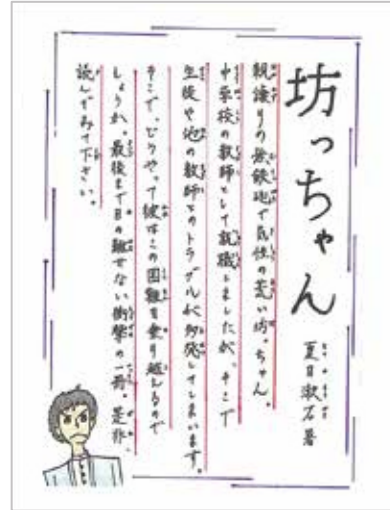 坊っちゃん
夏目漱石 著
親譲りの無鉄砲で気性の荒い坊っちゃん。
中学校の教師として就職しましたが、そこで
生徒や他の教師とのトラブルが多発してしまいます。
そこで、どうやって彼はこの困難を乗り越えるので
しょうか。最後まで目の離せない衝撃の一冊。是非
読んでみて下さい。